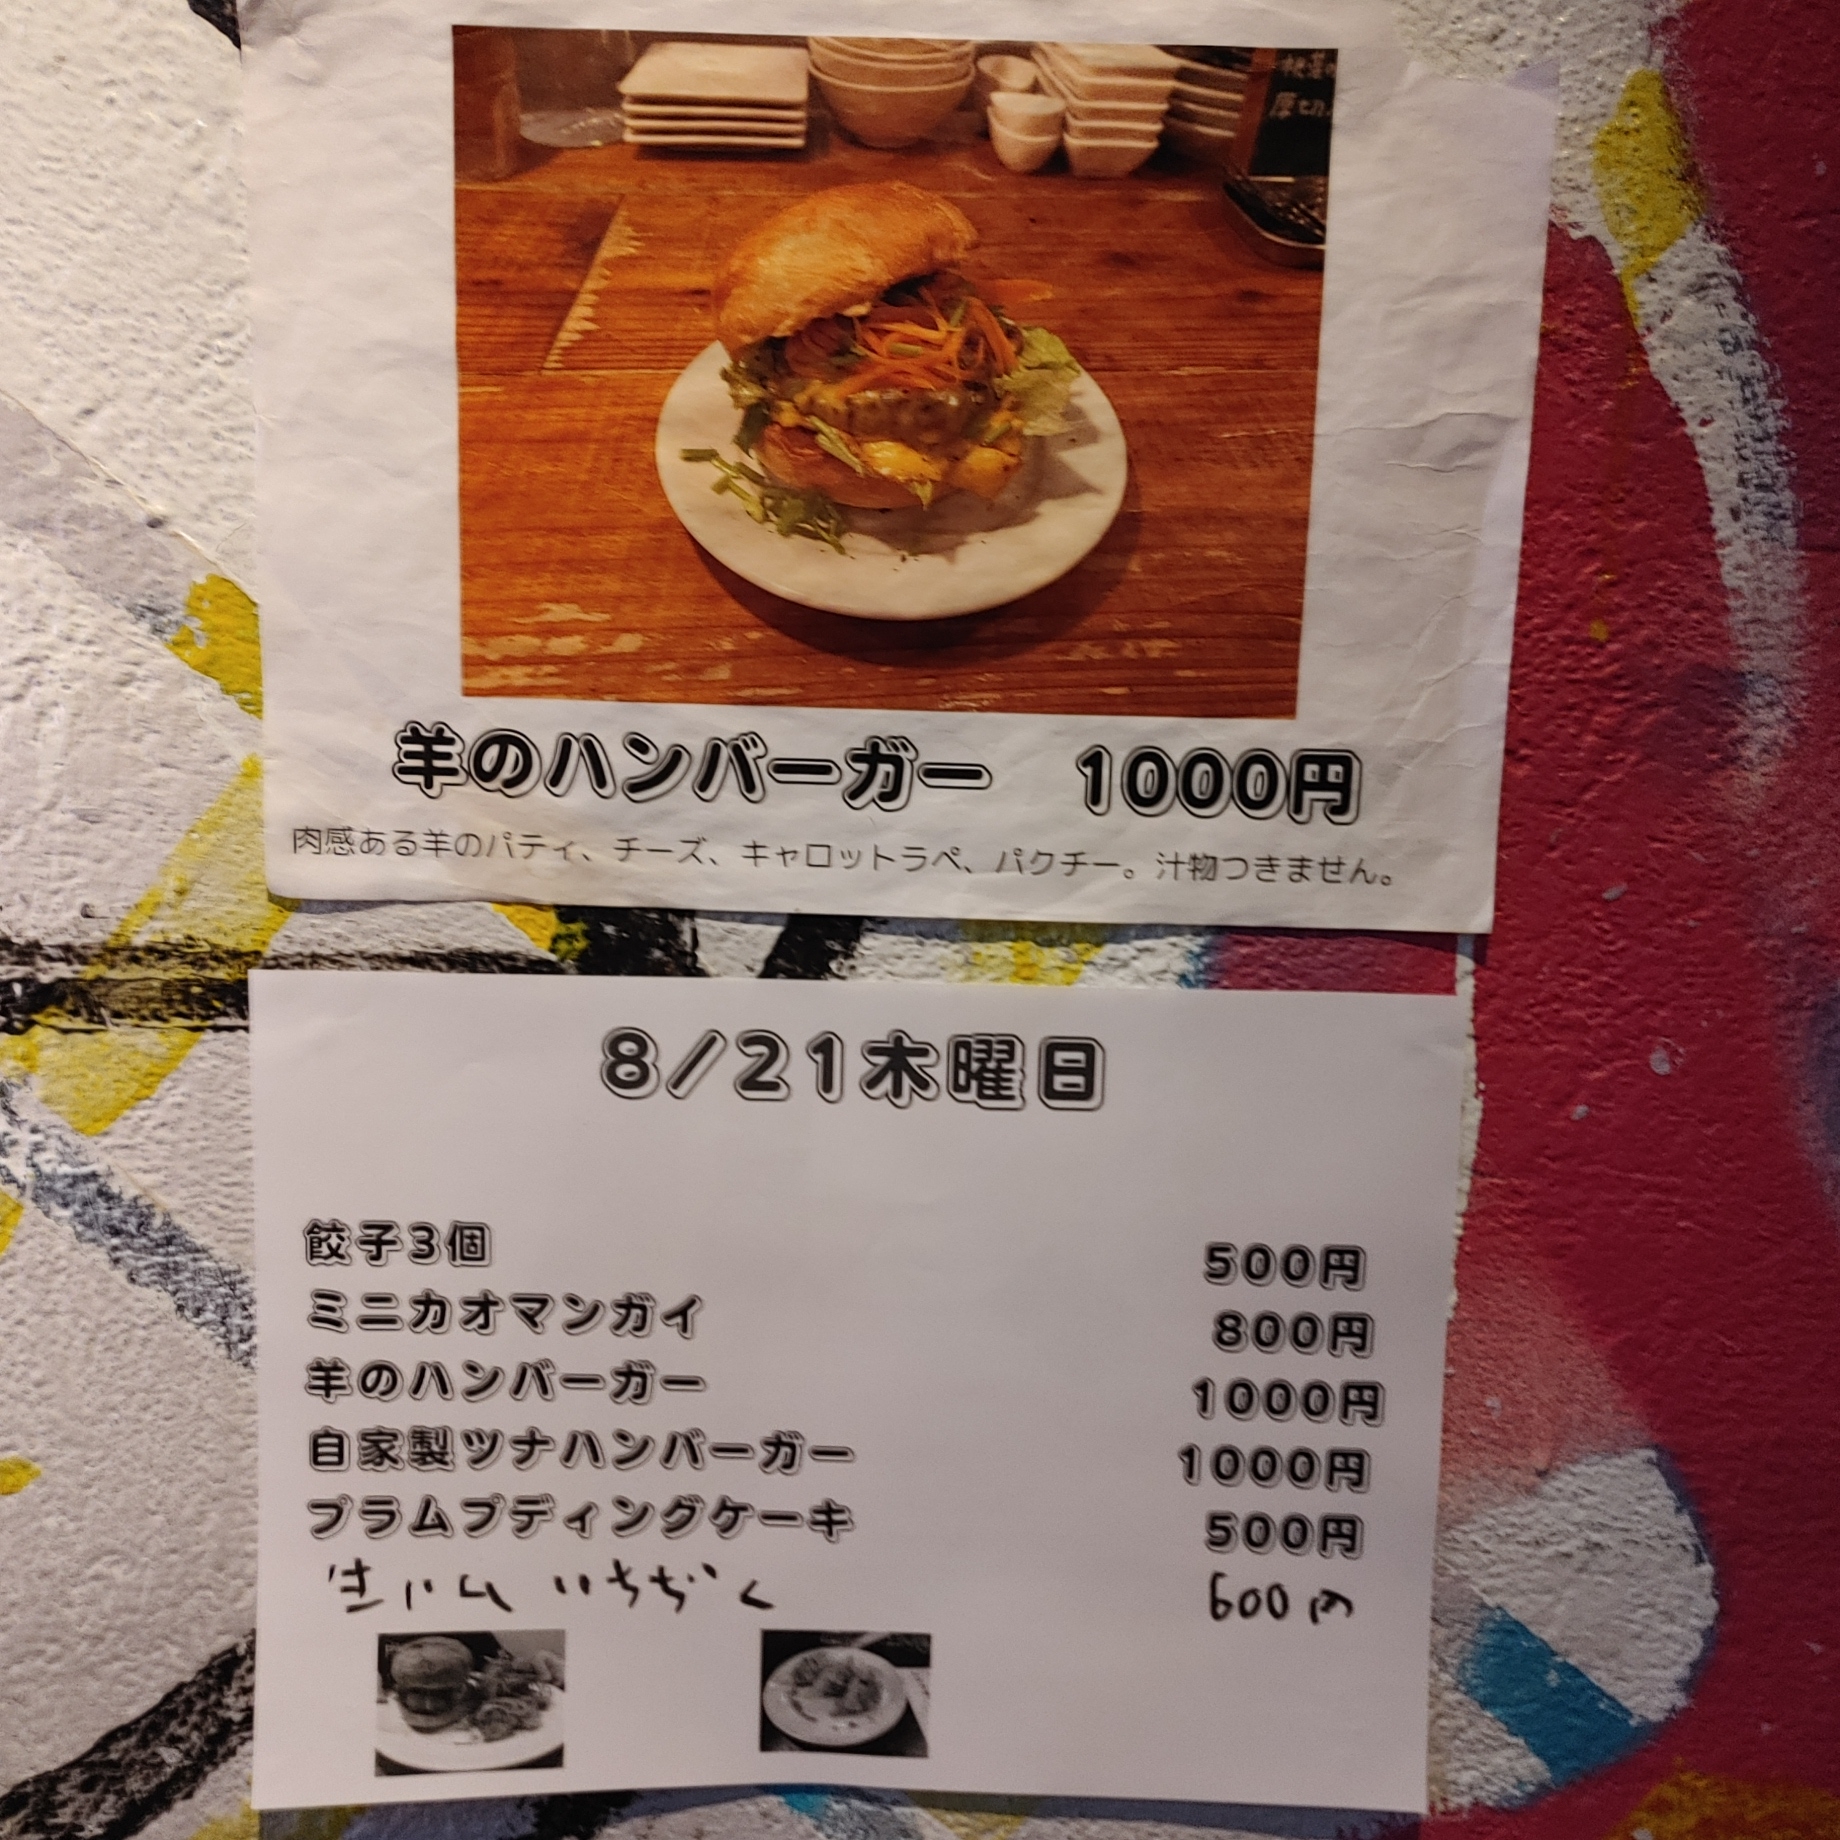 羊のハンバーガー　1000円
肉感ある羊のパティ、チーズ、キャロットラペ、パクチー。汁物つきません。
8/21木曜日
餃子3個 500円
ミニカオマンガイ 800円
羊のハンバーガー 1000円
自家製ツナハンバーガー 1000円
プラムプディングケーキ 500円
生ハム いちぢく 600円